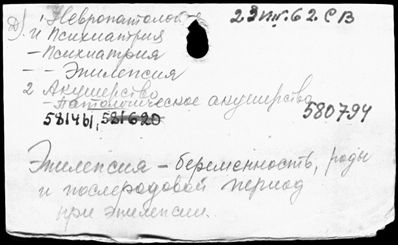 Д). 1 Невропатология 23 VIII. 62. СВ
и Психиатрия
- Психиатрия
- - Эпилепсия
2 Акушерство
- патологическое акушерство
580794
581461, 581620
Эпилепсия - беременность, роды
и послеродовой период
при эпилепсии.